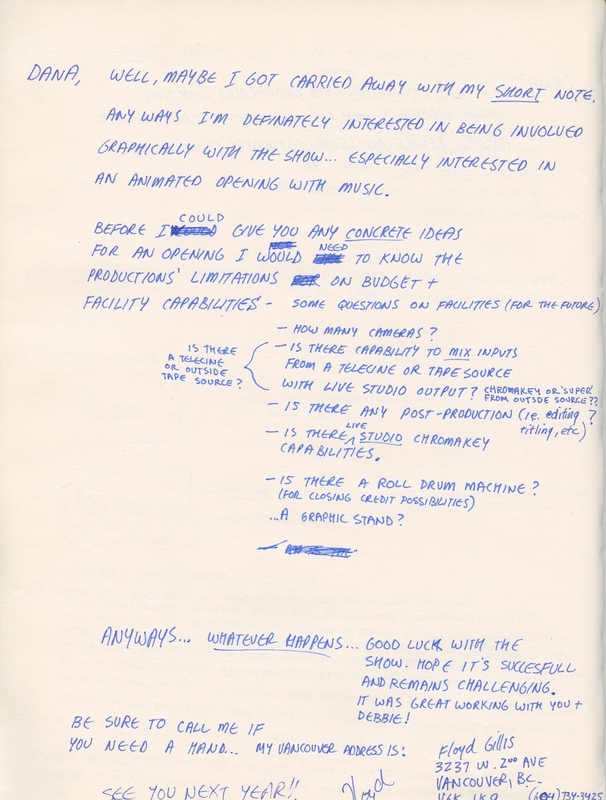 DANA, WELL, MAYBE I GOT CARRIED AWAY WITH MY SHORT NOTE.
ANYWAYS I'M DEFINATELY INTERESTED IN BEING INVOLVED
GRAPHICALLY WITH THE SHOW... ESPECIALLY INTERESTED IN
AN ANIMATED OPENING WITH MUSIC.
BEFORE I COULD GIVE YOU ANY CONCRETE IDEAS
FOR AN OPENING I WOULD NEED TO KNOW THE
PRODUCTIONS' LIMITATIONS ON BUDGET +
FACILITY CAPABILITIES - SOME QUESTIONS ON FACILITIES (FOR THE FUTURE)
- HOW MANY CAMERAS?
- IS THERE CAPABILITY TO MIX INPUTS
FROM A TELECINE OR TAPE SOURCE
WITH LIVE STUDIO OUTPUT? CHROMAKEY OR 'SUPER'
FROM OUTSDE SOURCE??
IS THERE
A TELECINE
OR OUTSIDE
TAPE SOURCE?
- IS THERE ANY POST-PRODUCTION (i.e. editing ?
titling, etc)
- IS THERE LIVE STUDIO CHROMAKEY
CAPABILITIES.
- IS THERE A ROLL DRUM MACHINE?
(FOR CLOSING CREDIT POSSIBILITIES)
...A GRAPHIC STAND?
ANYWAYS... WHATEVER HAPPENS... GOOD LUCK WITH THE
SHOW. HOPE IT'S SUCCESFULL
AND REMAINS CHALLENGING.
IT WAS GREAT WORKING WITH YOU +
DEBBIE!
BE SURE TO CALL ME IF
YOU NEED A HAND... MY VANCOUVER ADDRESS IS:
Floyd Gillis
3237 W. 2ND AVE
VANCOUVER, BC.
V6K 1K9 (604) 734-3425
SEE YOU NEXT YEAR!! Floyd